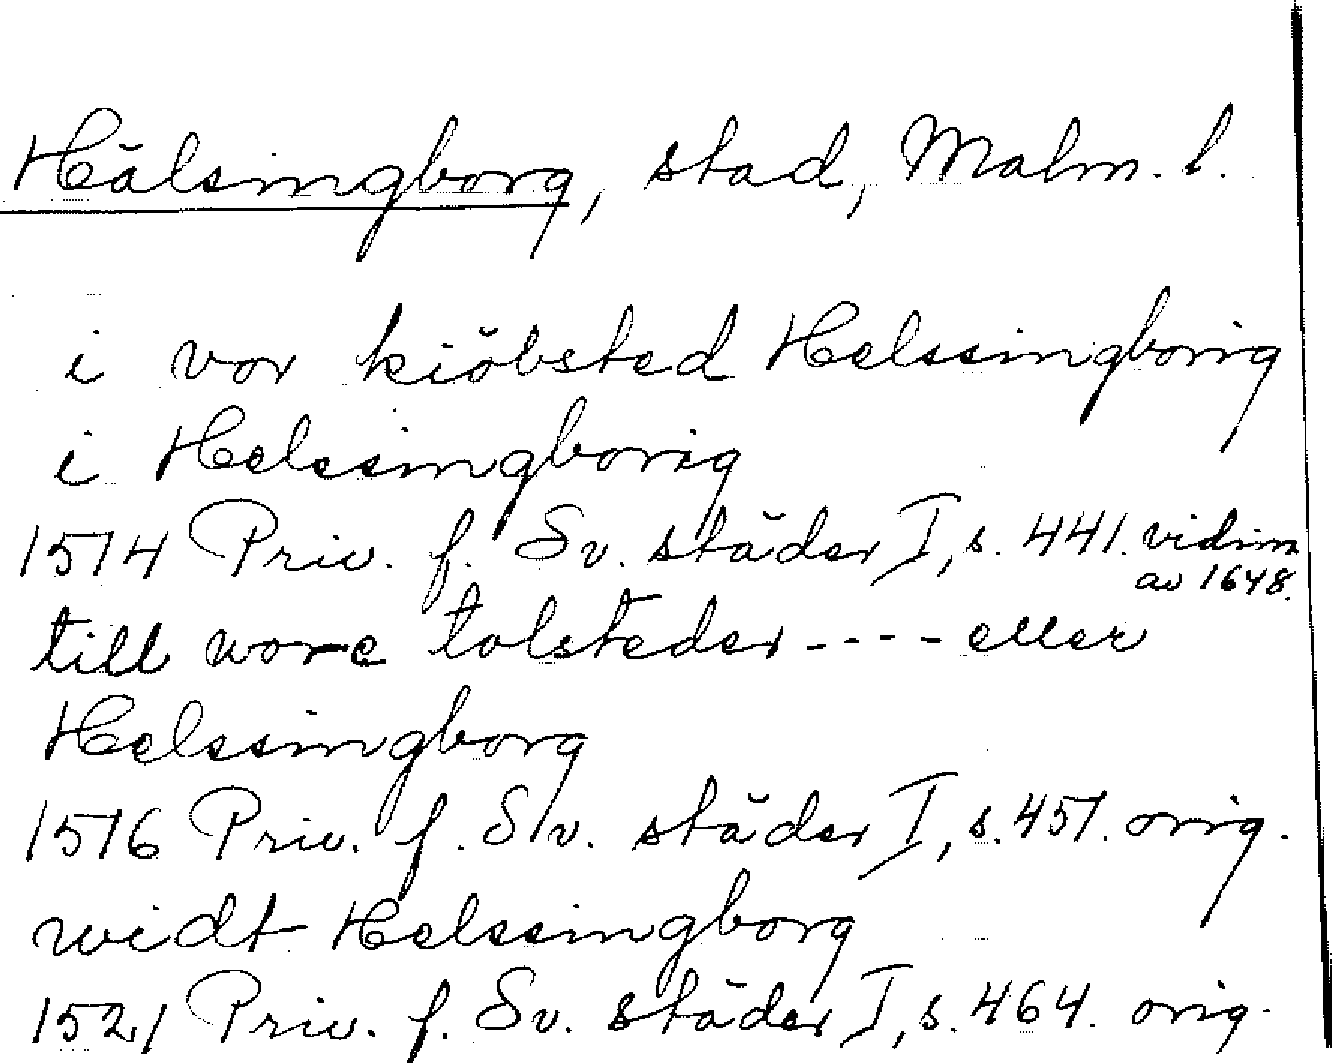 Hälsingborg, stad, Malm. l.
i vor kiöbsted Helssingborig
i Helssingborig
1514 Priv. f. Sv. städer I, s. 441. vidim
av 1648.
till wore tolsteder - - - - eller
Helssingborg
1516 Priv. f. Sv. städer I, s. 451. orig.
widt Helssingborg
1521 Priv. f. Sv. städer I, s. 464. orig.